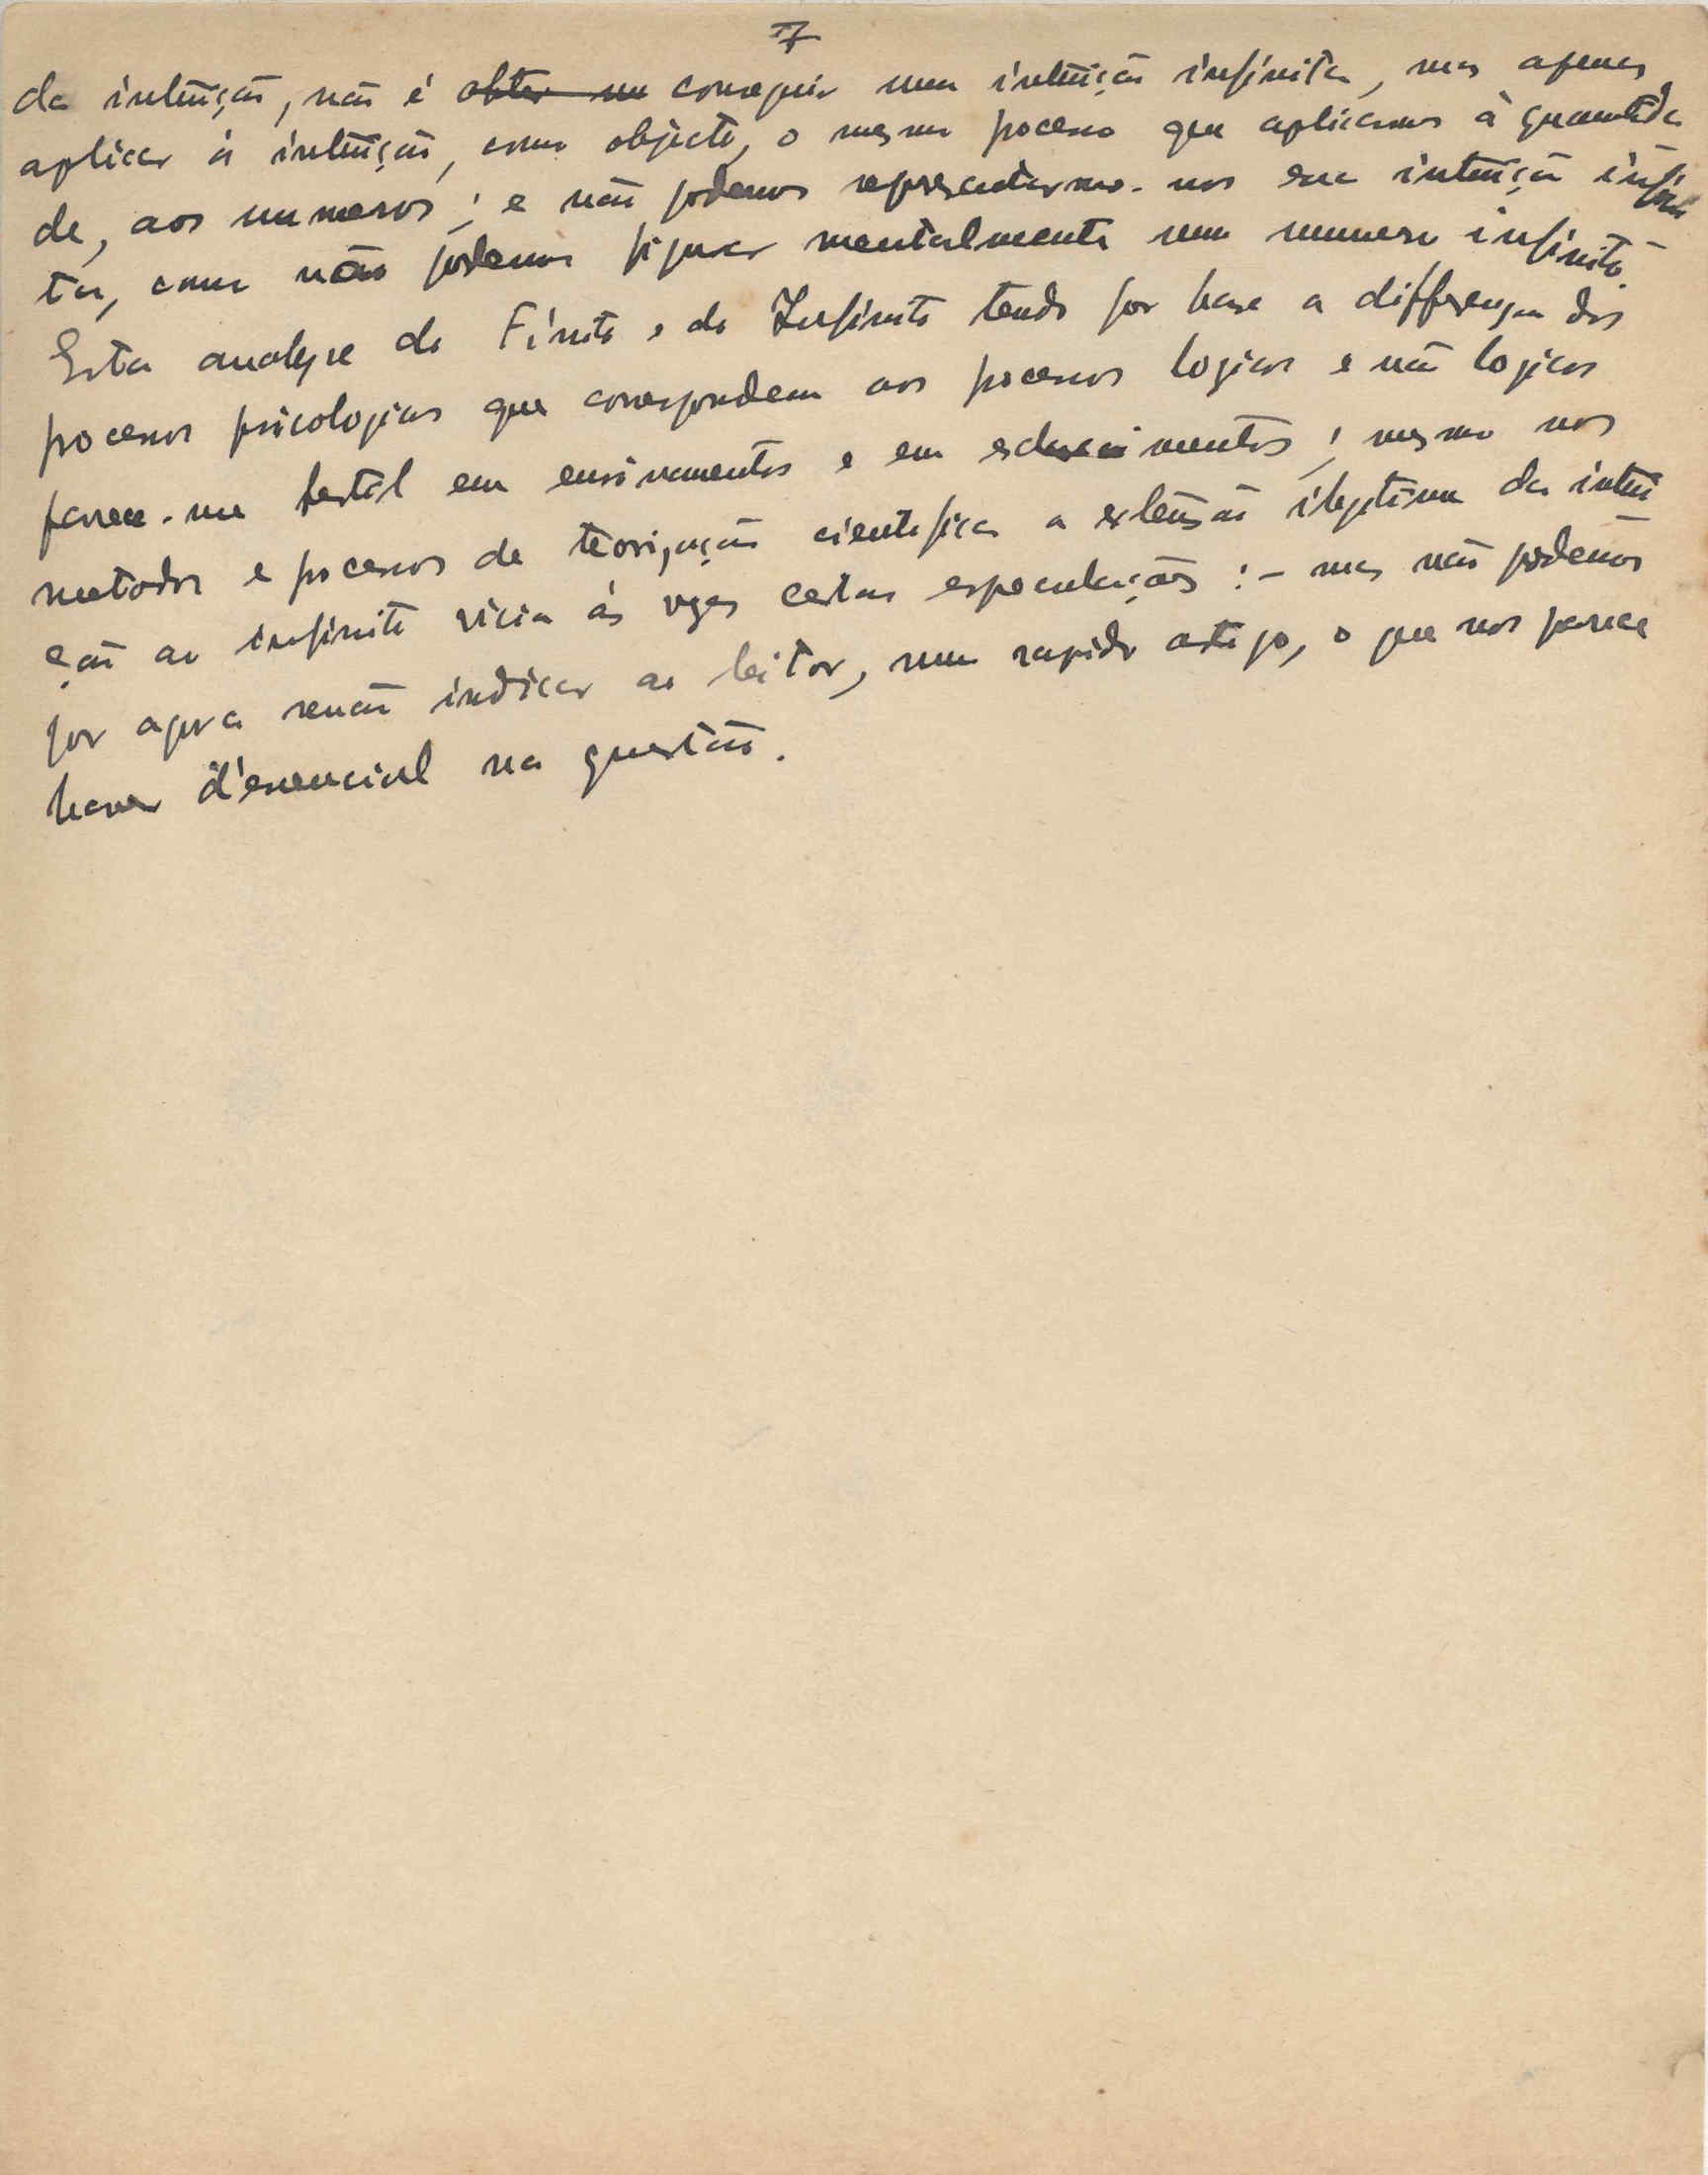 7
da intuição, não é obter um conseguir uma intuição infinita, mas apenas
aplicar á intuição, como objecto, o mesmo processo que aplicamos à quantida
de, aos numeros; e não podemos representarmo-nos essa intuição infini
ta, como não podemos figurar mentalmente um numero infinito.
Esta analyse do Finito e do Infinito tendo por base a differença dos
processos psicologicos que correspondem aos processos logicos e não logicos
parece-me fertil em ensinamentos e em esclarecimentos; mesmo nos
metodos e processos de teorização cientifica a extensão ilegitima da intui
ção ao infinito vicia ás vezes certas especulações: - mas não podemos
por agora senão indicar ao leitor, num rapido artigo, o que nos parece
haver d'essencial na questão.